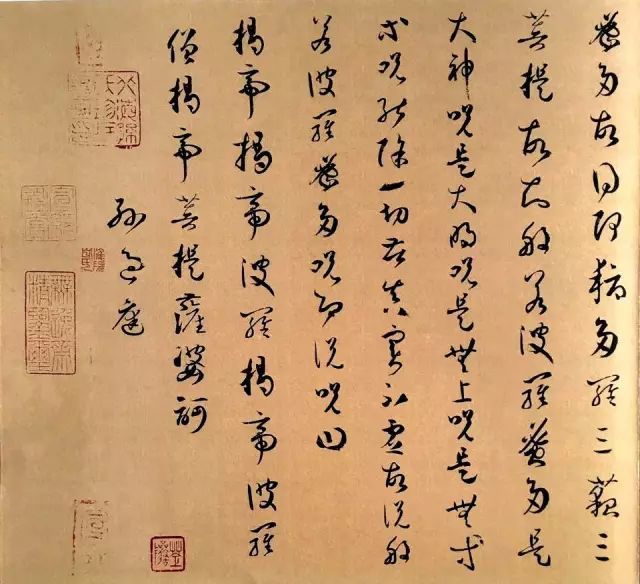 蜜多故得阿耨多羅三藐三
菩提故知般若波羅蜜多是
大神呪是大明呪是無上呪是無等
等呪能除一切苦真實不虛故說般
若波羅蜜多呪即說呪曰
揭帝揭帝波羅揭帝波羅
僧揭帝菩提薩婆訶
孫過庭